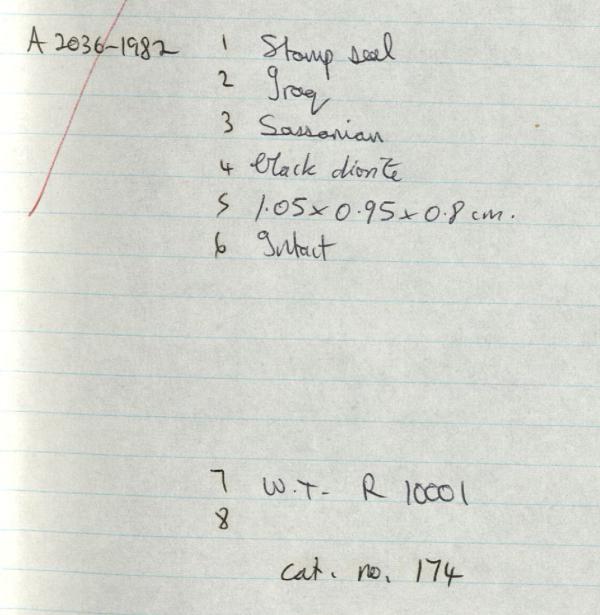 A 2036-1982 1 Stamp seal
2 Iraq
3 Sassanian
4 black diorite
5 1.05 x 0.95 x 0.8 cm.
6 Intact
7 W.T- R 10001
8
cat. no. 174